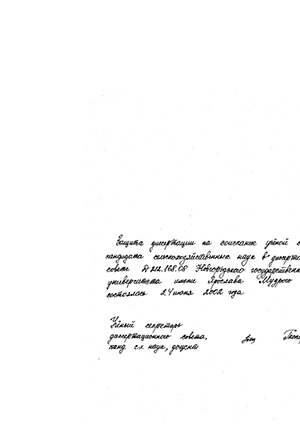 Защита диссертации на соискание учёной с
кандидата сельскохозяйственных наук в диссерта
совете Д 212.168.08 Новгородского государственн
университета имени Ярослава Мудрого
состоялась 24 июня 2002 года
Учёный секретарь
диссертационного совета,
канд. с.х. наук, доцент